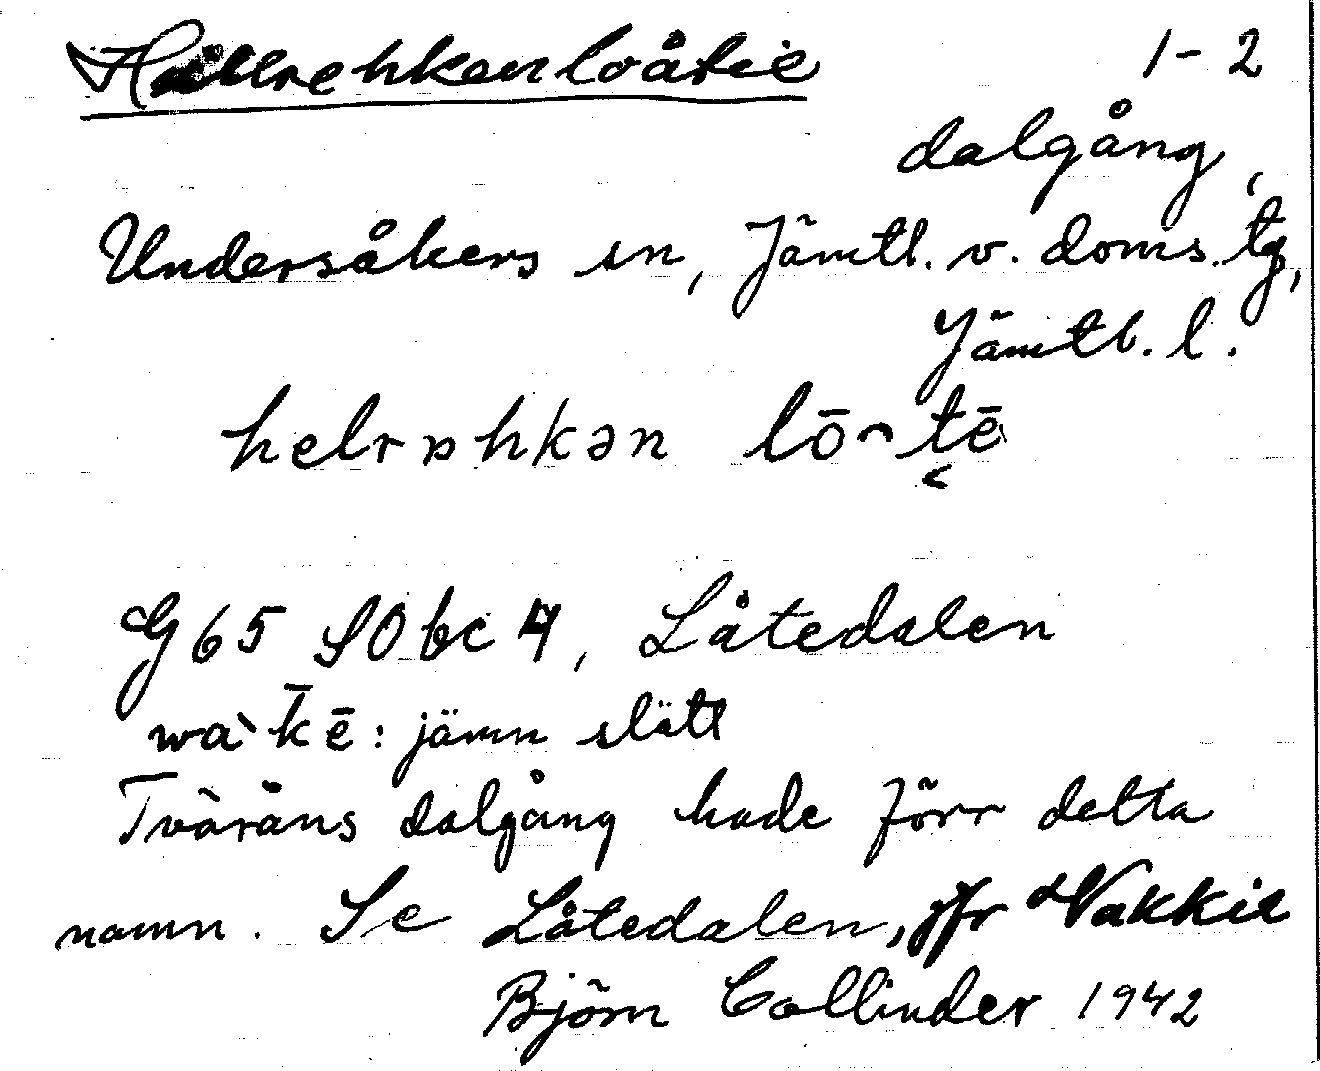 Hällrehkenloåtie 1-2
dalgång,
Undersåkers sn, Jämtl. v. doms. tg,
Jämtl. l.
helrəhkən lō͡tē
G65 SO bc 4, Låtedalen
wàk̄ē: jämn slätt
Tväråns dalgång hade förr detta
namn. Se Låtedalen, jfr Vakkie
Björn Collinder 1942